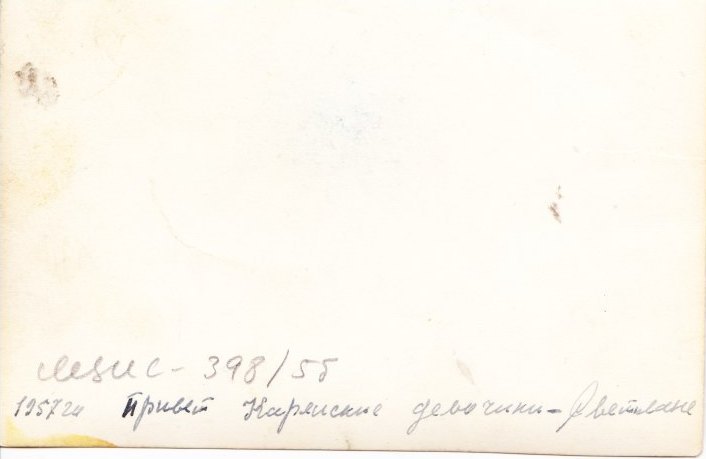 МЗИС - 398/55
1957 г. Привет Карельские девочики - Светлане